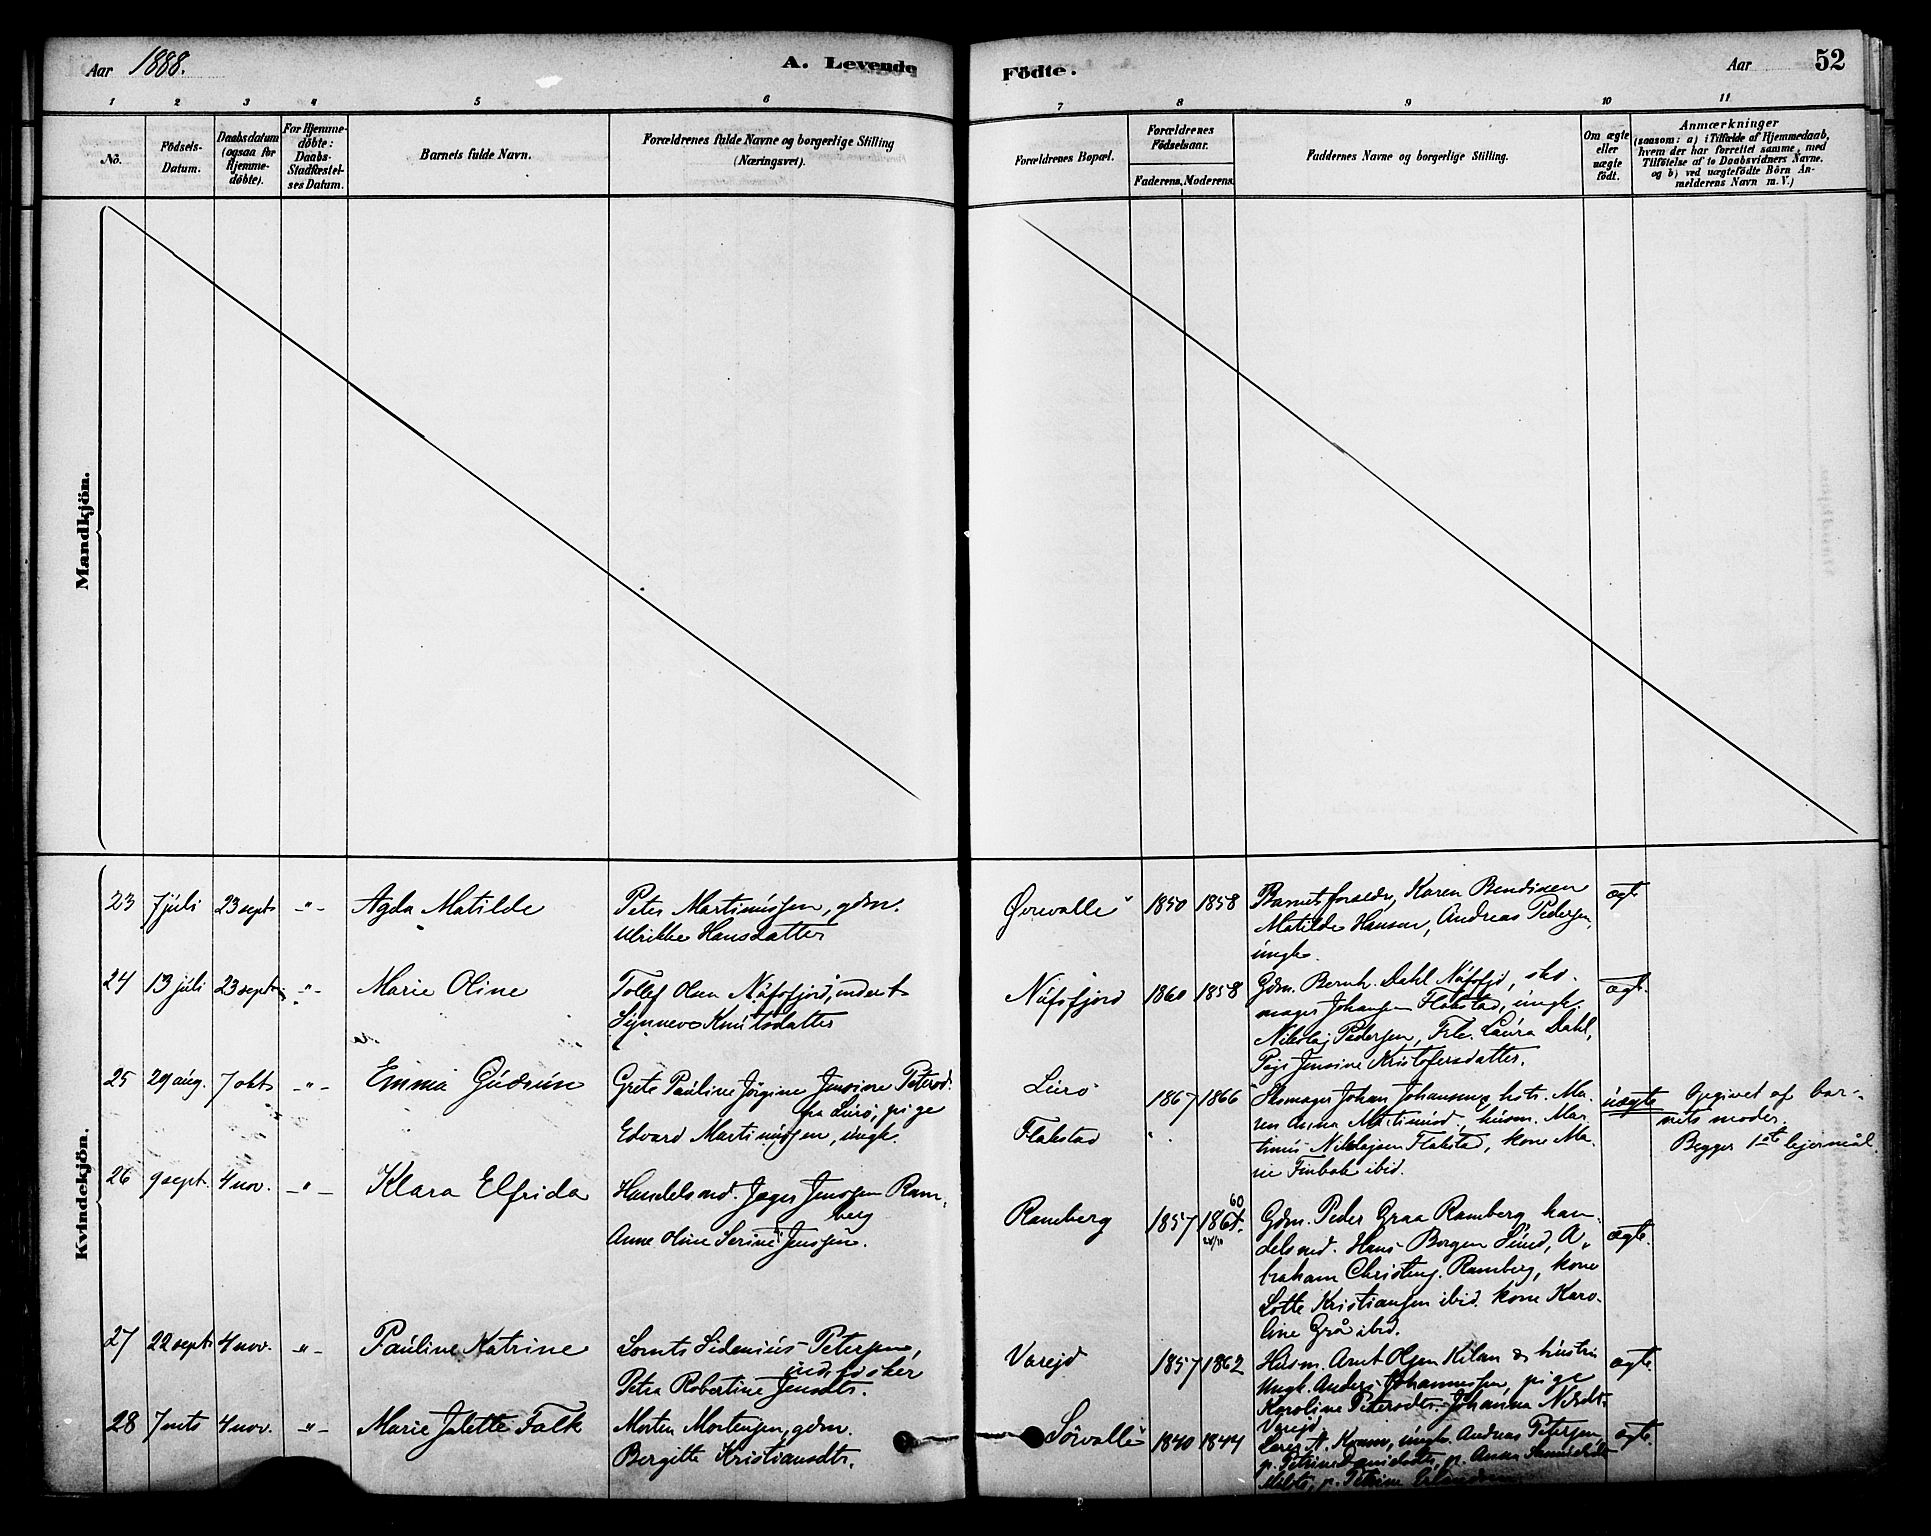 Aar 1888.
A. Levende Födte.
Aar
52
1 2 3 4 5 6 7 8 9 10 11
No.
Födsels-
Datum.
Daabsdatum
(ogsaa for
Hjemme-
döbte).
For Hjemme-
döbte:
Daabs-
Stadfæstel-
ses Datum.
Barnets fulde Navn.
Forældrenes fulde Navne og borgerlige Stilling
(Næringsvei).
Forældrenes Bopæl.
Forældrenes
Födselsaar.
Faderens. Moderens.
Faddernes Navne og borgerlige Stilling.
Om ægte
eller
uægte
födt.
Anmærkninger
(saasom: a) i Tilfælde af Hjemmedaab,
hvem der har forrettet samme, med
Tilföielse af to Daabsvidners Navne.
og b) ved uægtefödte Börn An-
melderens Navn m. V.)
Mandkjön.
Kvindekjön.
23 7 juli 23 sept -"- Agda Matilde
Peter Martinussen, gdm.
Ulrikke Hansdatter
Ørevalle 1850 1858
Barnets forældre, Karen Bendixen
Matilde Hansen, Andreas Pedersen,
ungk.
ægt
24 13 juli 23 sept. -"- Marie Oline
Tollef Olsen Nufsfjord,
Synneve Knutsdatter
Nufsfjord 1860 1858
Gdm. Bernh. Dahl Nufsfjd, sko-
mager Johansen Flakstad, ungk.
Nikolaj Pedersen, Frk. Laura Dahl,
Pige Jensine Kristofersdatter.
ægt.
25 29 aug. 7 okt -"- Emma Gudrun
Grete Pauline Jörgine Jensine Petersd.
fra Lurö, pige
Edvard Martinussen, ungk.
Lurö
Flakstad
1867 1866
Skomager Johan Johansen & hstr. Ma-
ren Anna Martinusd., husm. Mar-
tinus Nikolajsen Flakstad, kone Ma-
rie Finbak ibid.
uægte
Opgivet af bar-
nets moder.
Begges 1ste lejermål
26 9 sept. 4 nov. -"- Klara Elfrida
Handelsmd. Jager Jenssen Ram-
berg
Anne Oline Serine Jenssen.
Ramberg 1857 1864. 60
Gdm. Peder Graa Ramberg, han-
delsmd. Hans Borgen Sund, A-
braham Christens. Ramberg, kone
Lotte Kristiansen ibid. kone Karo-
line Grå ibid.
ægte.
27 22 sept 4 nov. -"- Pauline Katrine
Lornts Sidenius Petersen,
inds. fisker
Petra Robertine Jensdtr.
Varejd 1857 1862
Husm. Arnt Olsen Kilan & hustru
Ungk. Anders Johannesen, pige
Karoline Pedersdtr. Johanna
Varejd
ægte.
28 7 4 nov. -"- Marie Jolette Falk
Morten Mortensen, gdm.
Bergitte Kristiansdtr.
Sörvalle 1840 1844
Lærer A. ungk. Andreas Petersen,
p. Petrine p. Anna
p. Petrine
ægte.